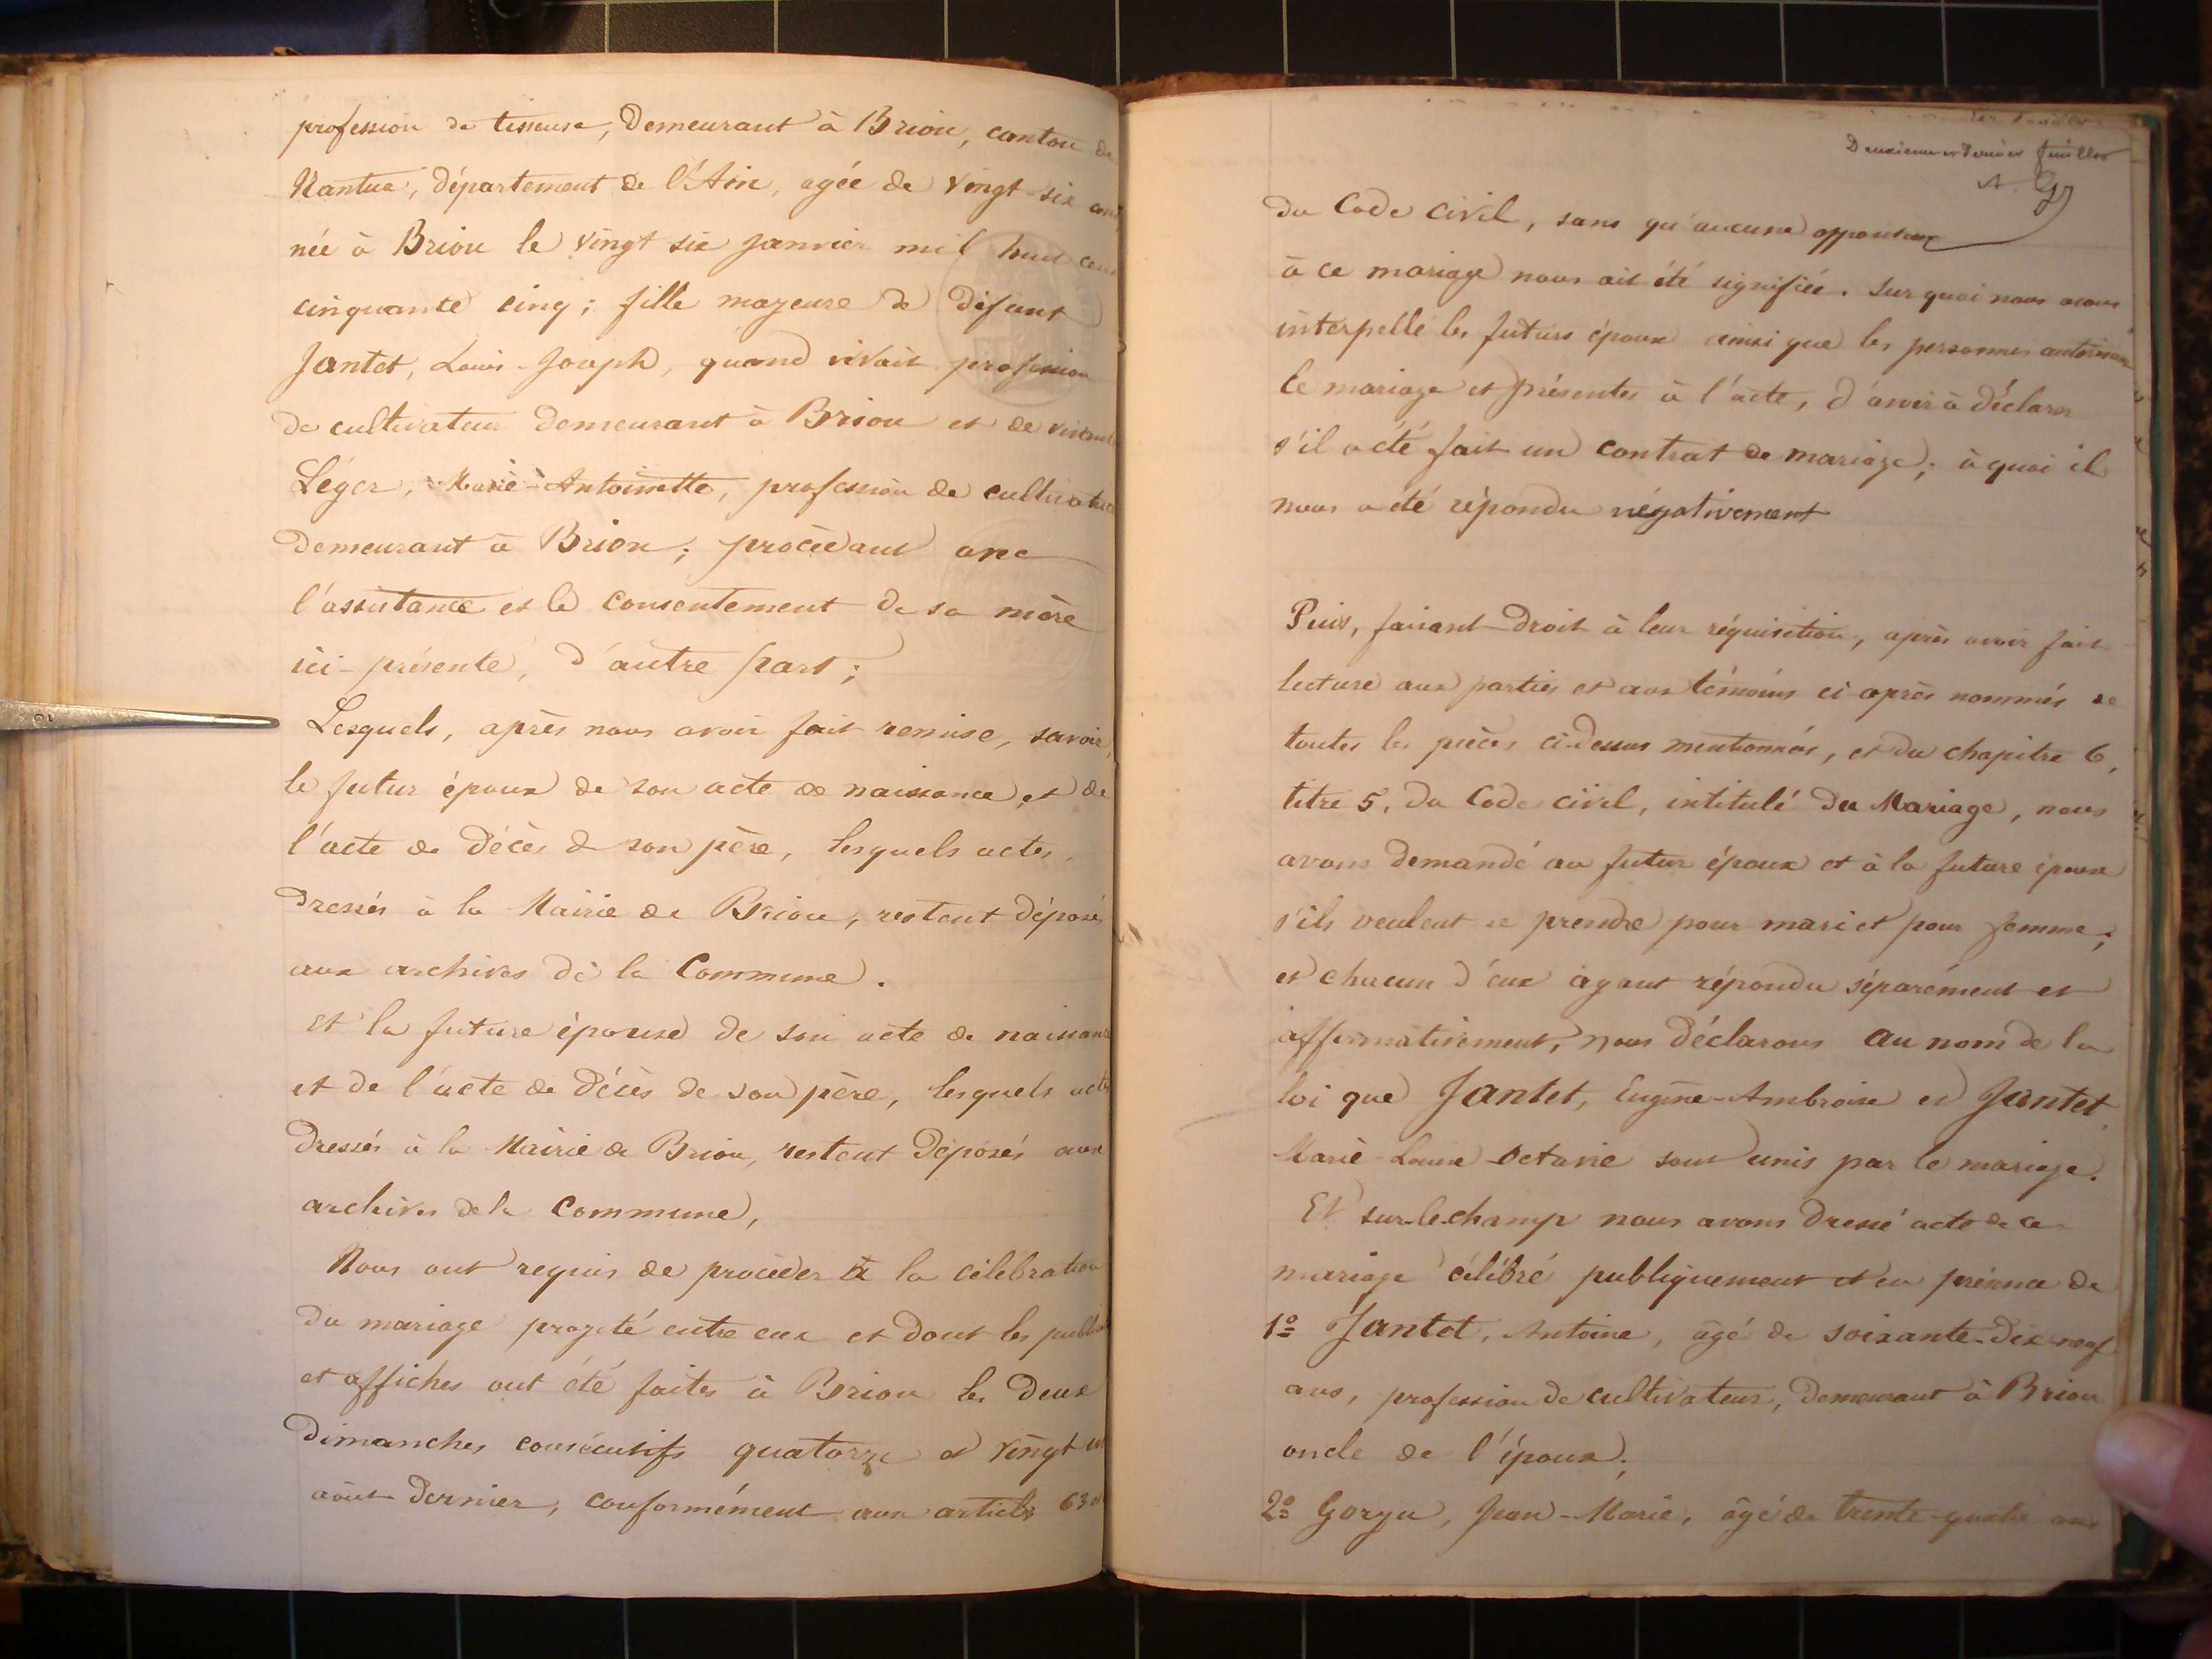 profession de tisseuse, Demeurant à Briou, canton de
Nantua, département de l'Ain, agée de vingt-six ans
née à Briou le vingt six janvier mil huit cent
cinquante cinq; fille majeure de défunt
Jantet, Louis-Joseph, quand vivait profession
de cultivateur demeurant à Briou et de vivante
Léger, Marie-Antoinette, profession de cultivatrice
demeurant à Briou; procédant avec
l'assistance et le consentement de sa mère
ici-présente, d'autre part;
Lesquels, après nous avoir fait remise, savoir,
le futur époux de son acte de naissance, et de
l'acte de décès de son père, lesquels actes,
dressés à la Mairie de Briou, restent déposés
aux archives de la Commune.
Et la future épouse de son acte de naissance
et de l'acte de décès de son père, lesquels actes
dressés à la Mairie de Briou, restent déposés aux
archives de la Commune,
Nous ont requis de procéder à la célébration
du mariage projeté entre eux et dont les
et affiches ont été faites à Briou les deux
dimanches consécutifs quatorze et vingt un
août dernier, conformément aux articles 63
Deuxième et dernier feuillet
du Code civil, sans qu'aucune opposition
à ce mariage nous ait été signifiée. Sur quoi nous avons
interpellé les futurs époux ainsi que les personnes autorisant
le mariage et présentes à l'acte, d'avoir à déclarer
s'il a été fait un contrat de mariage; à quoi il
nous a été répondu négativement
Puis, faisant droit à leur réquisition, après avoir fait
lecture aux parties et aux témoins ci-après nommés de
toutes les pièces ci-dessus mentionnées, et du chapitre 6,
titre 5, du Code civil, intitulé Du Mariage, nous
avons demandé au futur époux et à la future épouse
s'ils veulent se prendre pour mari et pour femme;
et chacun d'eux ayant répondu séparément et
affirmativement, nous déclarons au nom de la
loi que Jantet, Eugène-Ambroise et Jantet,
Marie-Louise Octavie sont unis par le mariage.
Et sur-le-champ nous avons dressé acte de ce
mariage célébré publiquement et en présence de
1º Jantet, Antoine, âgé de soixante-dix-neuf
ans, profession de cultivateur, demeurant à Briou
oncle de l'époux;
2º Gorju, Jean-Marie, âgé de trente-quatre ans